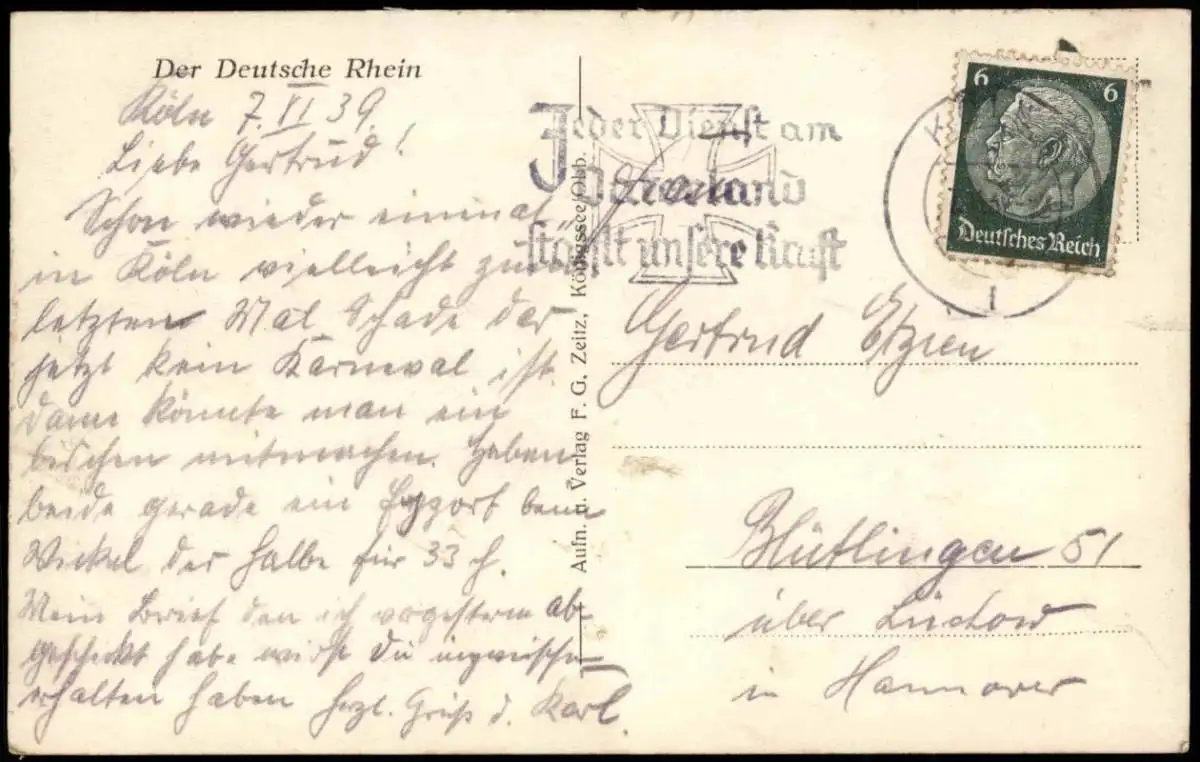 Der Deutsche Rhein
Köln 7. VI 39
Liebe Gertrud!
Schon wieder einmal
in Köln vielleicht zum
letzten Mal. Schade das
jetzt kein Karneval ist
dann könnte man ein
bischen mitmachen. Haben
beide gerade ein Export beim
Wickel der halbe für 33 d.
Mein Brief den ich vorgestern ab-
geschickt habe wirst du inzwischen
erhalten haben herzl. Grüß d. Karl.
Aufn. u. Verlag F. G. Zeitz, Königssee/Obb.
Jeder Dienst am
Vaterland
stählt unsere Kraft
6 6
Deutsches Reich
K
1
Gertrud Etzien
Blütlingen 51
über Lüchow
in Hannover